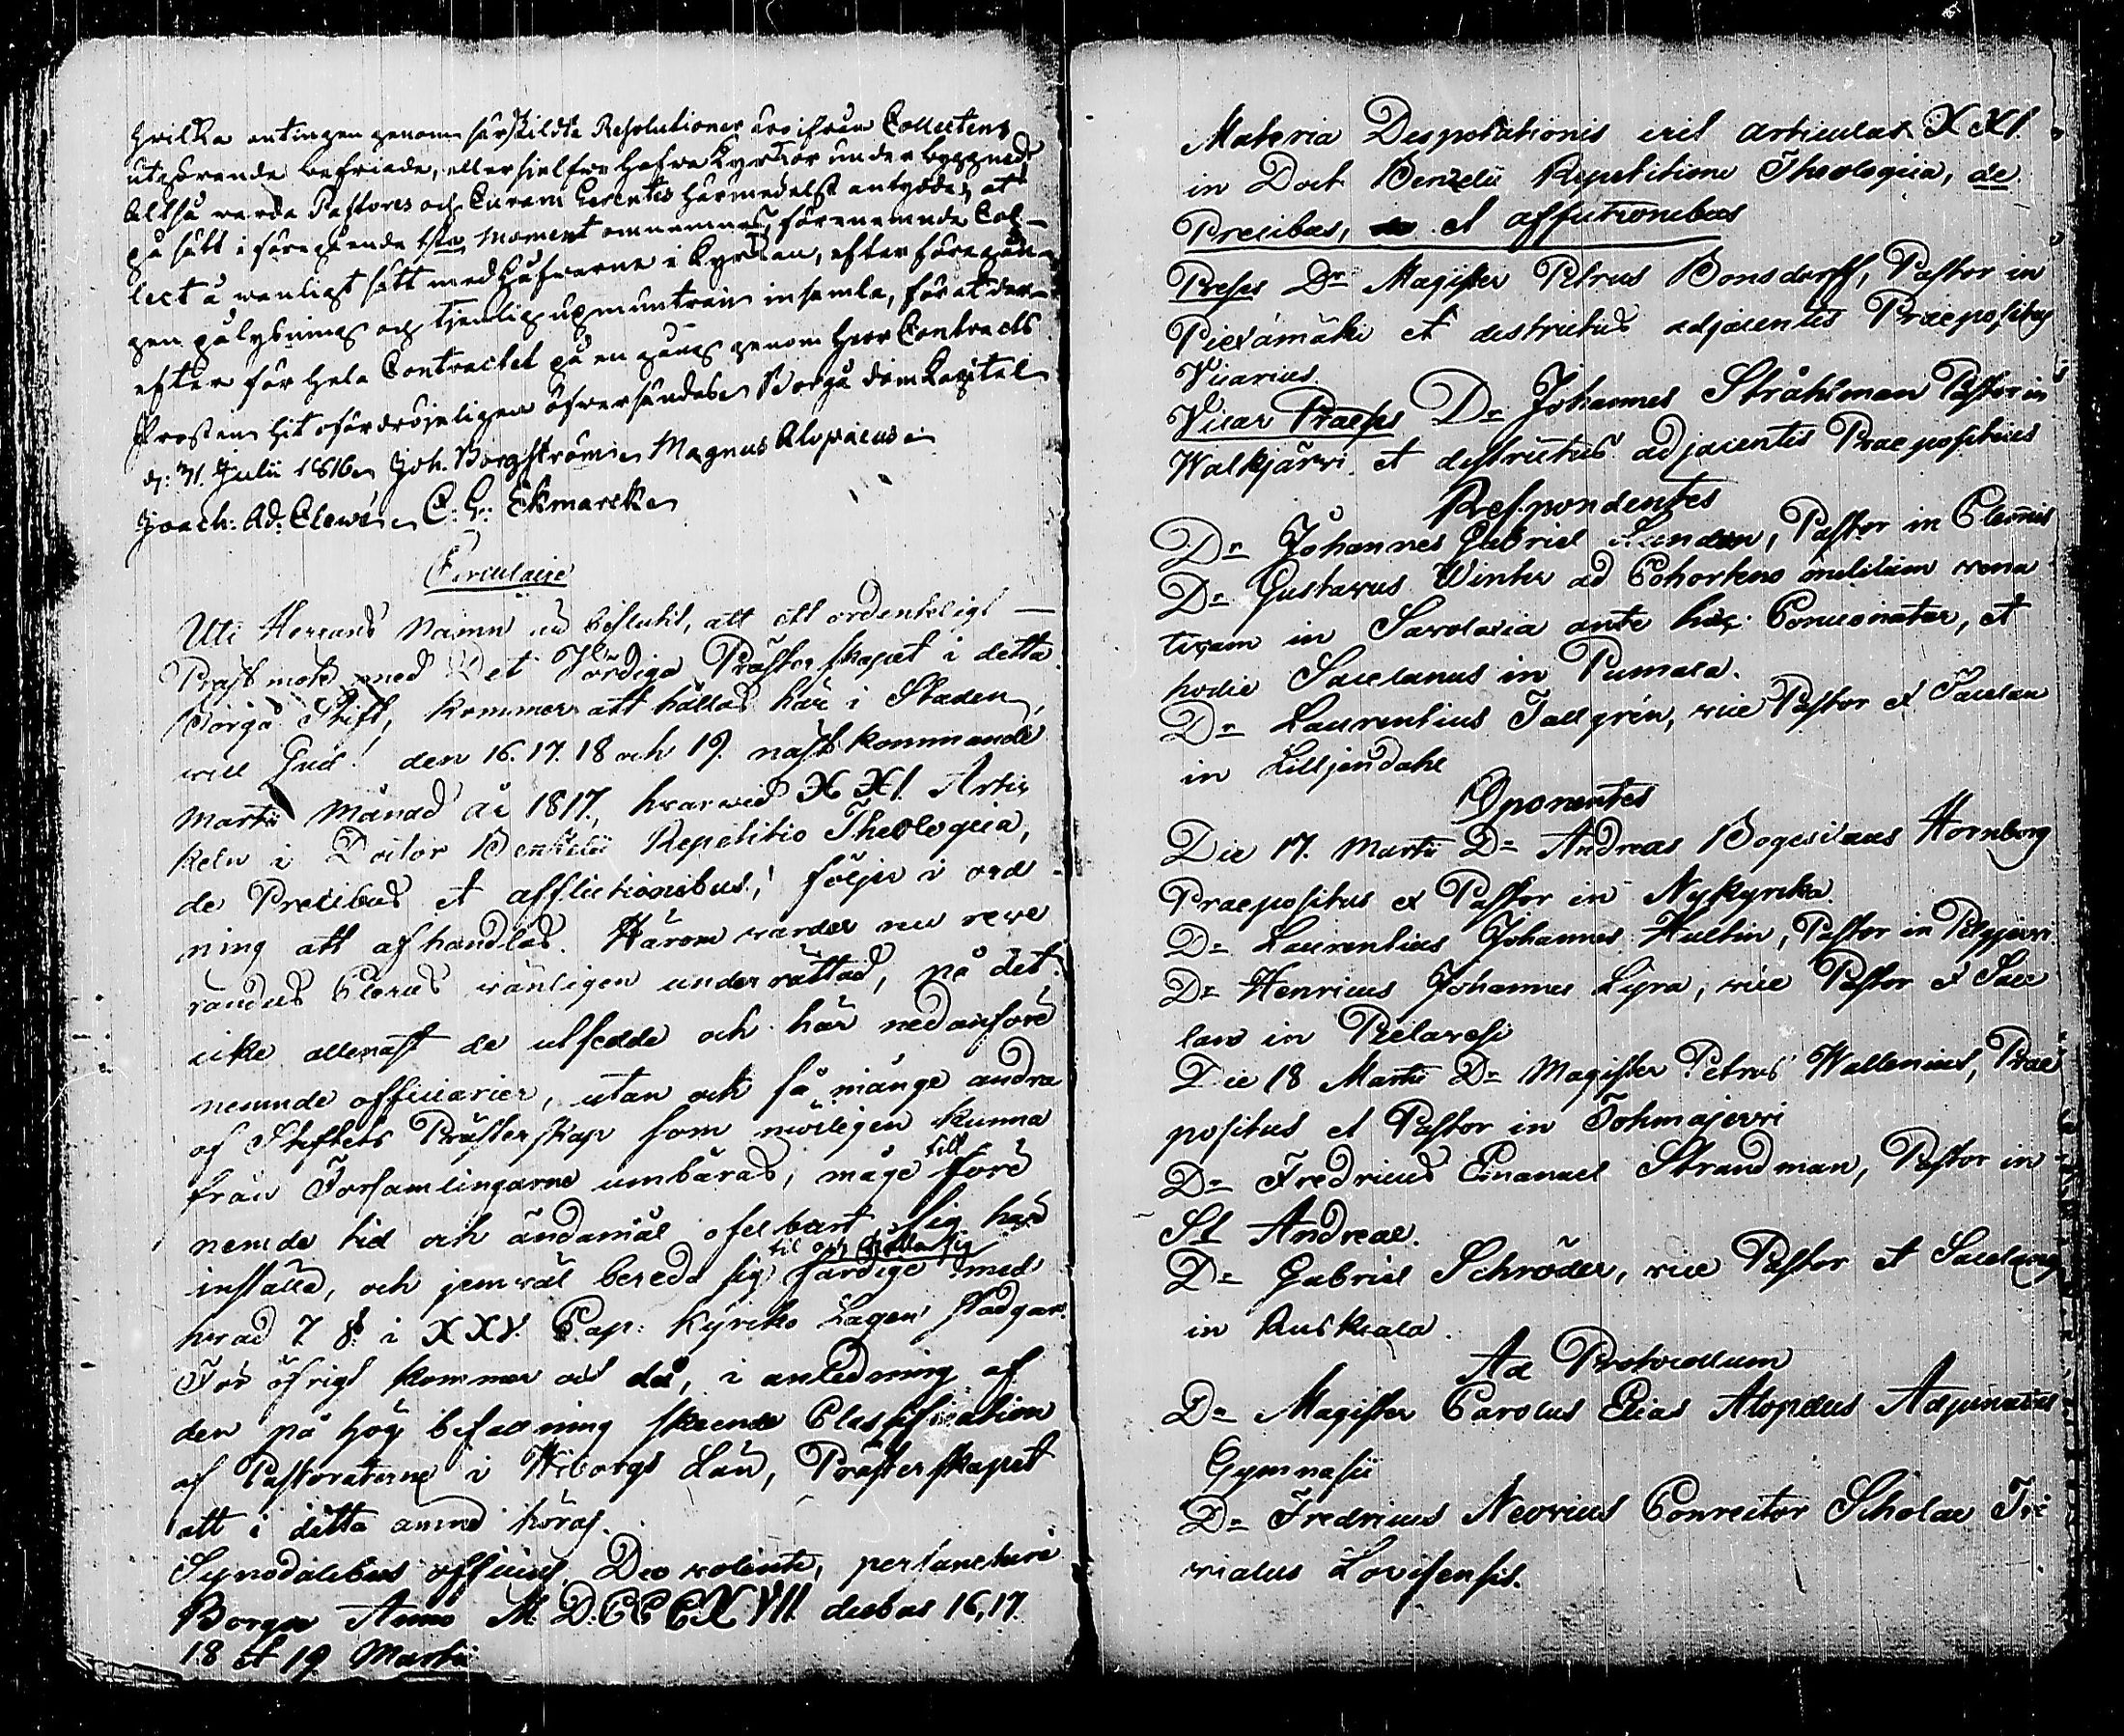 hvilka antingen genom särskildta Resolutioner äro ifrån Collectens
utgörande befriade, eller sielfve hafva Kyrkor under byggnad
Altså varda Pastores och Curam Gerentes härmedelst antydde, at
på sätt i föregående 1sta moment omnemnes, förenemnde Col-
lect å vanligt sätt med Håfvarne i Kyrkan, efter föregån-
gen pålysning och tjenlig upmuntran insamla, för at der-
efter för hela Contractet på en gång genom Herr Contracts
Prosten hit ofördröjeligen öfversändas. Borgå Domkapitel
d: 31 Julii 1816. Joh. Borgström. Magnus Alopaeus.
Joach: Ad: Clewé. C: G: Ekmarck.
Circulaire
Uti Herrans Namn är beslutit, att ett ordenteligt
Prästmöte med Det Wördiga Prästerskapet i detta
Borgå Stift, kommer att hållas här i Staden,
will Gud! den 16. 17. 18 och 19. nästkommande
Martii Månad år 1817., hvarwed XXI. Arti-
keln i Doctor Benzelii Repetitio Theologica,
de Precibus et afflictionibus, följer i ord-
ning att afhandlas. Härom warder nu reve-
randus Clerus wänligen underrättad, på det
icke allenast de utsedde och här nedanföre
nemnde officiarier, utan och så månge andra
af Stiftets Prästerskap som möiligen kunna
från Församlingarne umbäras, måge till före
nemde tid och ändamål ofelbart sig här
inställa, och jemwäl bereda sig til och hålla sig färdige med
hwad 7 §. i XXV. Cap: Kyrko Lagen stadgar.
För öfrigt kommer ock då, i anledning af
den på hög befallning skeende Classification
af Pastoraterne i Wiborgs Län, Prästerskapet
att i detta ämne höras.
Synodalibus officiis, Deo volente, perfuncturi
Borgæ Anno M.D.CCCXVII. diebus 16, 17.
18 et 19 Martii
Materia Desputationis erit articulus XXI.
in Doct. Benzelii Repetitione Theologica, de
Precibus, et afflictionibus
Preses Dn Magister Petrus Bonsdorff, Pastor in
Piexämäki et districtus adjacentis Praepositus
Vicarius.
Vicar Praeses Dn Johannes Stråhlman Pastor in
Walkjärvi et districtus adjacentis Praepositus
Respondentes
Dn Johannes Gabriel Pastor in
Dn Gustavus Winter ad Cohortem militum vena
ticam in Savolaxia ante hac Concionator, et
hodie Sacelanus in Pumala.
Dn Laurentius Tallgrén, vice Pastor et Sacelan
in Liljendahl
Oponentes
Die 17. Martii Dn Andreas Bogislaus Hornborg
Praepositus et Pastor in Nykyrka.
Dn Laurentius Johannes Hultin, Pastor in
Dn Henricus Johannes Lyra, vice Pastor et Sace
lans in Pielavesi
Die 18 Martii Dn Magister Petrus Wallenius, Prae
positus et Pastor in Tohmajervi
Dn Fredricus Emanuel Strandman, Pastor in
St Andreae.
Dn Gabriel Schröder, vice Pastor et Sacelanus
in Ruskiala.
Ad Protocollum
Dn Magister Carolus Elias Alopæus Adjunctus
Gymnasii
Dn Fredricus Neovius Conrector Scholae Tri
vialis Lovisensis.